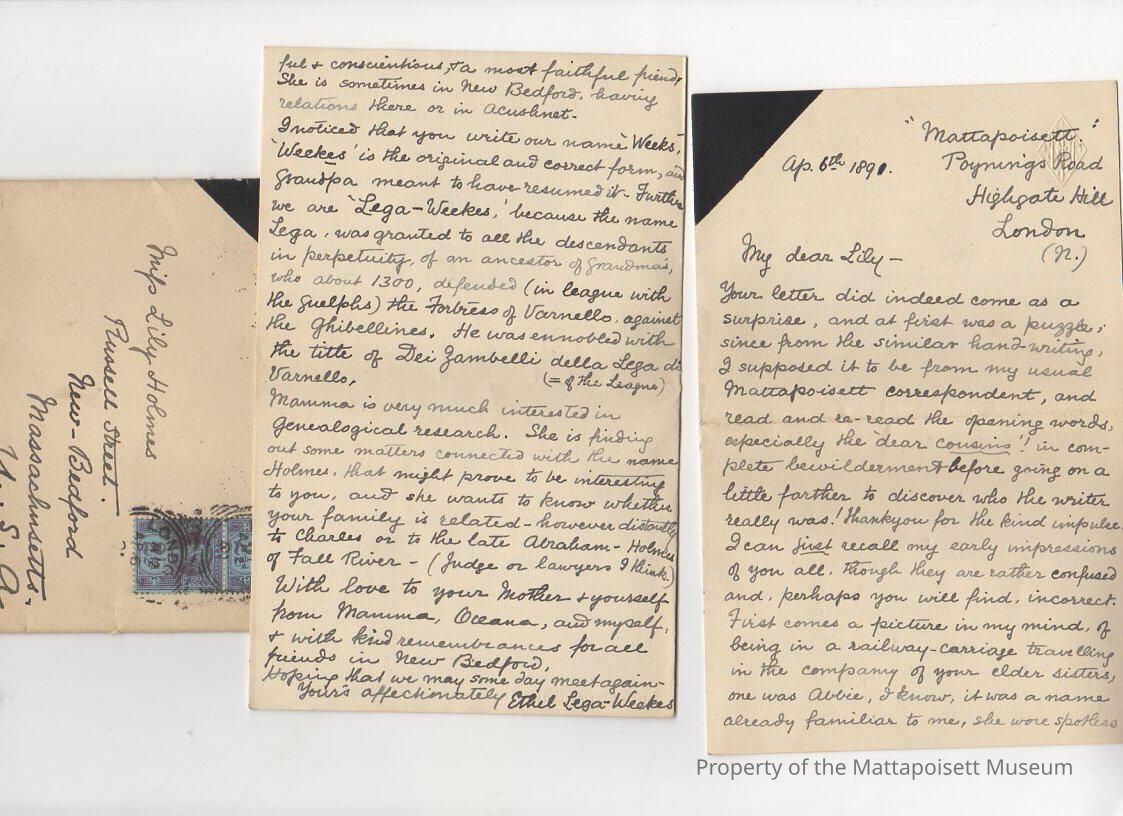 "Mattapoisett."
Poynings Road
Ap. 6th 1891.
Highgate Hill
London
(N.)
My dear Lily –
Your letter did indeed come as a
surprise, and at first was a puzzle;
since from the similar hand-writing,
I supposed it to be from my usual
Mattapoisett correspondent, and
read and re-read the opening words,
especially the 'dear cousins'! in com-
plete bewilderment before going on a
little farther to discover who the writer
really was! Thankyou for the kind impulse.
I can just recall my early impressions
of you all, though they are rather confused
and, perhaps you will find, incorrect.
First comes a picture in my mind, of
being in a railway-carriage travelling
in the company of your elder sisters,
one was Abbie, I know, it was a name
already familiar to me, she wore spotless
ful & conscientious, & a most faithful friend.
She is sometimes in New Bedford, having
relations there or in Acushnet.
I noticed that you write our name 'Weeks'.
'Weekes' is the original and correct form, and
Grandpa meant to have resumed it. Further
we are 'Lega-Weekes,' because the name
Lega, was granted to all the descendants
in perpetuity, of an ancestor of Grandma's,
who about 1300, defended (in league with
the Guelphs) the Fortress of Varnello, against
the Ghibellines. He was ennobled with
the title of Dei Zambelli della Lega di
Varnello.
(= of the League)
Mamma is very much interested in
Genealogical research. She is finding
out some matters connected with the name
Holmes, that might prove to be interesting
to you, and she wants to know whether
your family is related – however distantly
to Charles or to the late Abraham – Holmes
of Fall River – (Judge or lawyers I think.)
With love to your Mother & yourself
from Mamma, Oceana, and myself,
& with kind remembrances for all
friends in New Bedford,
Hoping that we may some day meet again –
Yours affectionately Ethel Lega-Weekes
Miss Lily Holmes
Russell Street.
New-Bedford
Massachusetts.
U. S. A.
Property of the Mattapoisett Museum